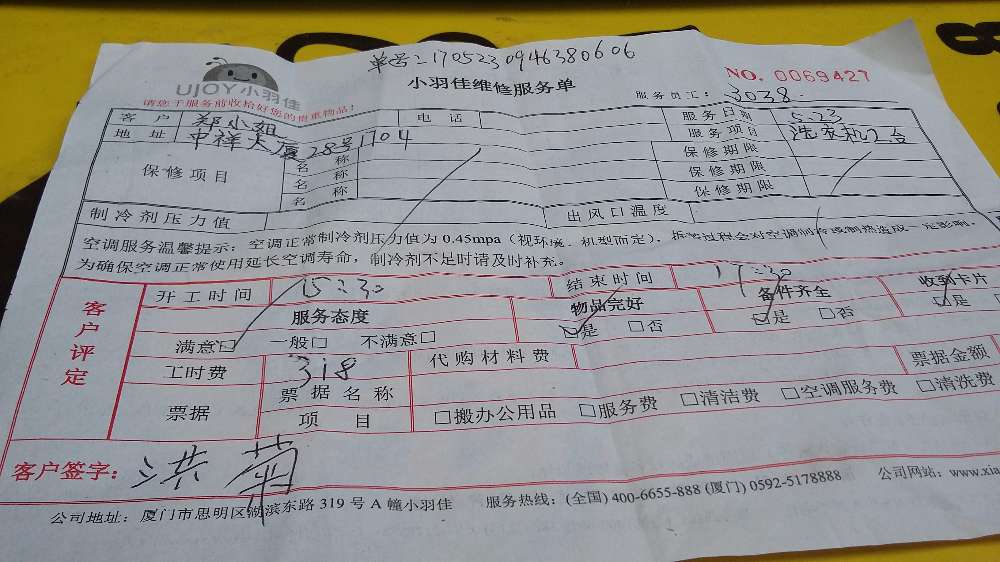 单号: 170523094638 0606
UJOY小羽佳
小羽佳维修服务单
NO. 0069427
请您于服务前收拾好您的贵重物品!
服务员工: 3038
客户 郑小姐 电话 服务日期 5.23
地址 中祥大厦28号1704 服务项目 洗衣机2台
保修项目 名称 保修期限
名称 保修期限
名称 保修期限
制冷剂压力值 出风口温度
空调服务温馨提示: 空调正常制冷剂压力值为 0.45mpa (视环境、机型而定), 拆装过程会对空调制冷或制热造成一定影响,
为确保空调正常使用延长空调寿命, 制冷剂不足时请及时补充。
客户评定
开工时间 15:30 结束时间 17:30
服务态度 物品完好 备件齐全 收到卡片
满意□ 一般□ 不满意□ □是 □否 □是 □否 □是
工时费 318 代购材料费 票据金额
票据 票据名称项目 □搬办公用品 □服务费 □清洁费 □空调服务费 □清洗费
客户签字: 洪菊
公司地址: 厦门市思明区湖滨东路 319 号 A 幢小羽佳 服务热线: (全国) 400-6655-888 (厦门) 0592-5178888 公司网站: www.xia